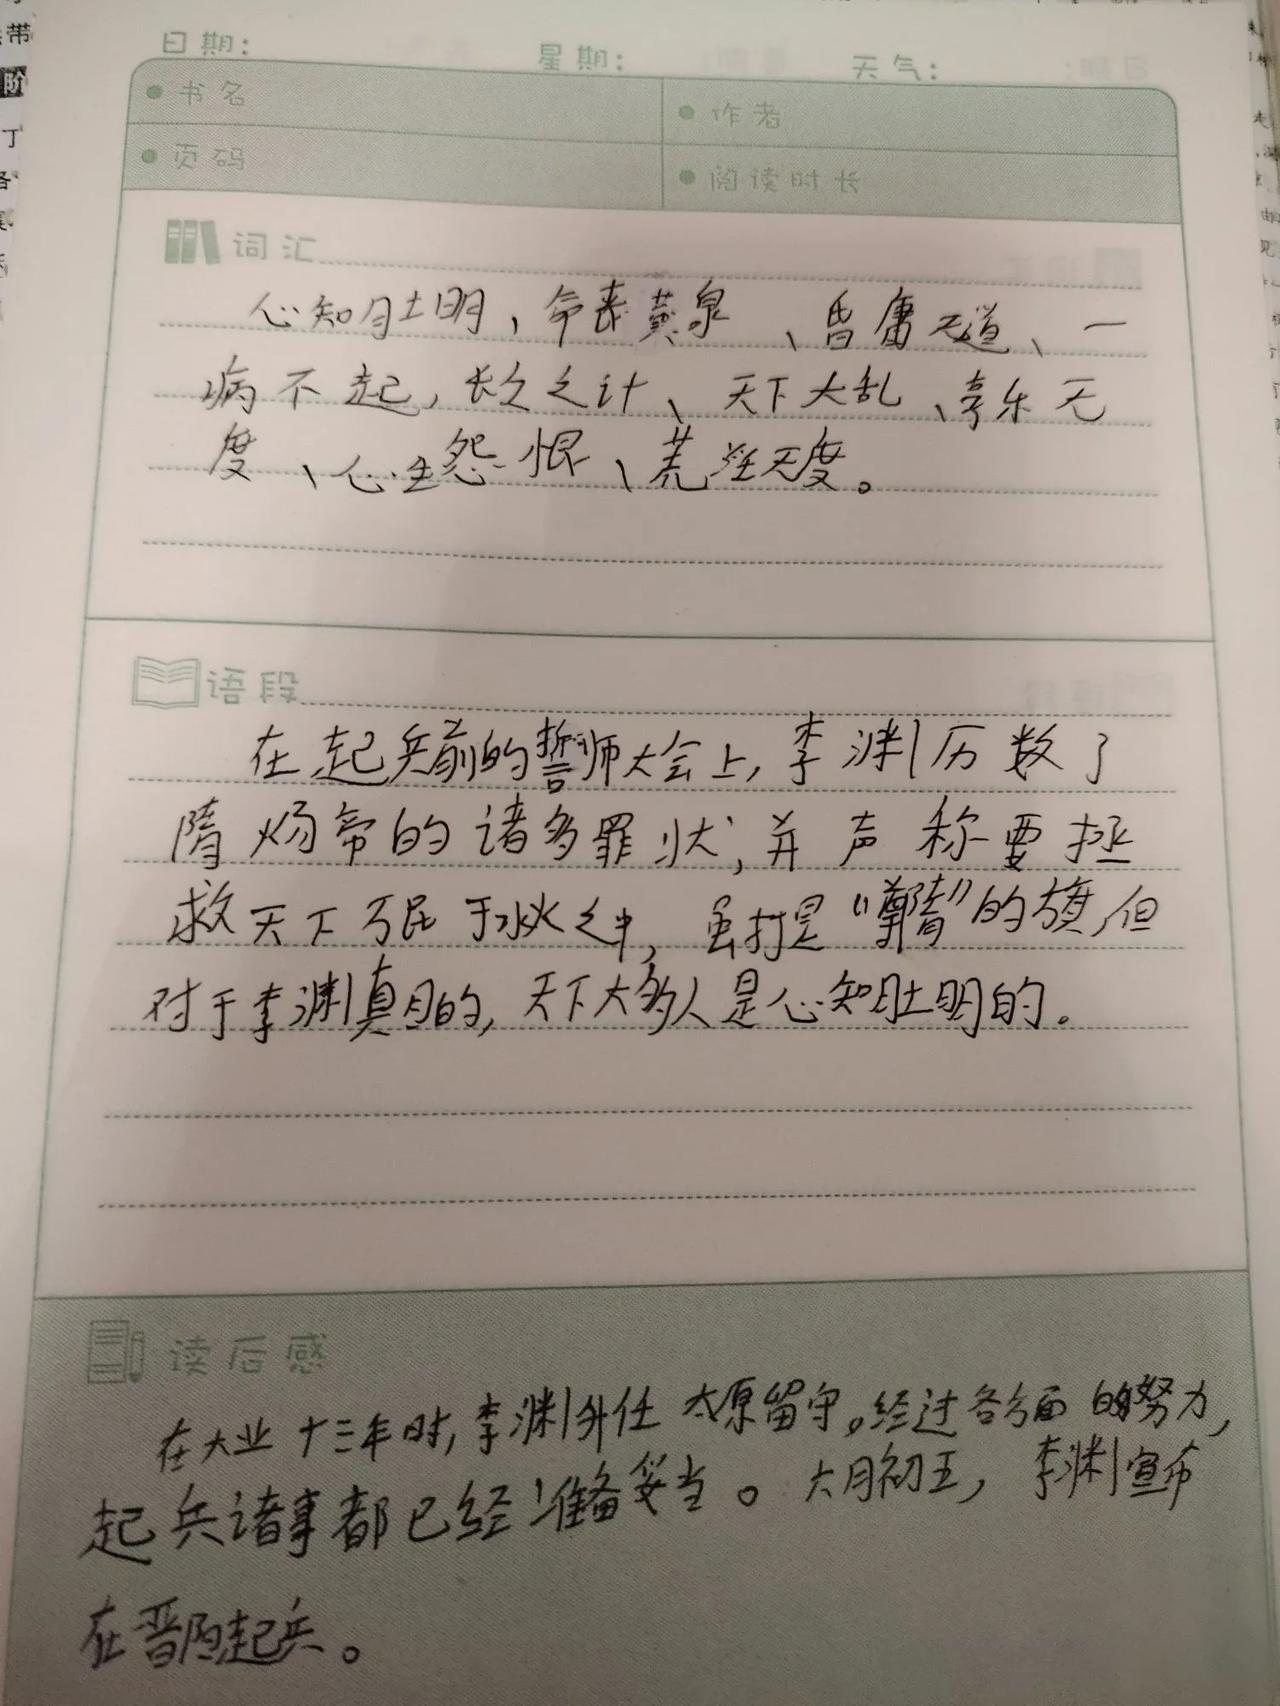 日期: 星期: 天气:
书名 作者
页码 阅读时长
词汇
心知肚明、命丧黄泉、昏庸无道、一
病不起,长久之计、天下大乱、享乐无
度、心生怨恨、荒淫无度。
语段
在起兵前的誓师大会上,李渊历数了
隋炀帝的诸多罪状,并声称要拯
救天下万民于水火之中,虽打是“尊隋”的旗,但
对于李渊真目的,天下大多人是心知肚明的。
读后感
在大业十三年时,李渊升任太原留守。经过各方面的努力,
起兵诸事都已经准备妥当。六月初五,李渊宣布
在晋阳起兵。